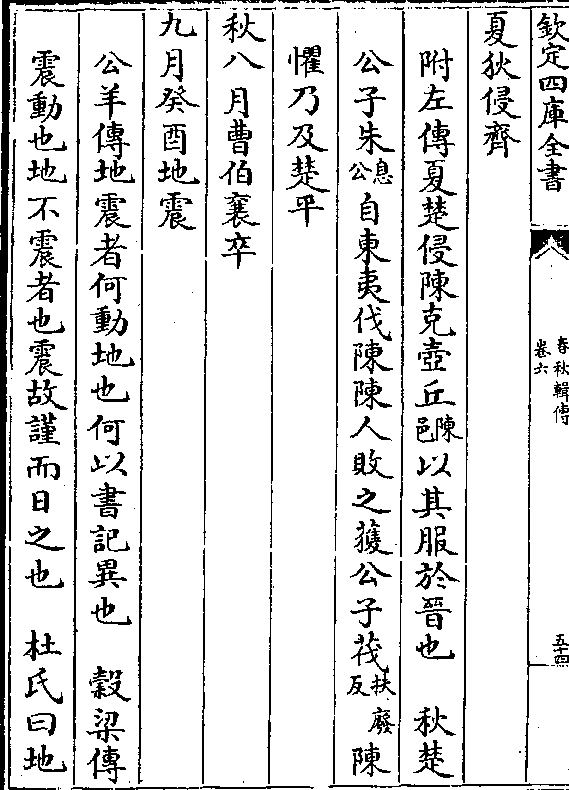 欽定四庫全書
春秋輯傳
卷六
五十四
夏狄侵齊
附左傳夏楚侵陳克壺丘陳邑以其服於晉也　秋楚
公子朱息公自東夷伐陳陳人敗之獲公子茷扶廢反陳
懼乃及楚平
秋八月曹伯襄卒
九月癸酉地震
公羊傳地震者何動地也何以書記異也　榖梁傳
震動也地不震者也震故謹而日之也　杜氏曰地